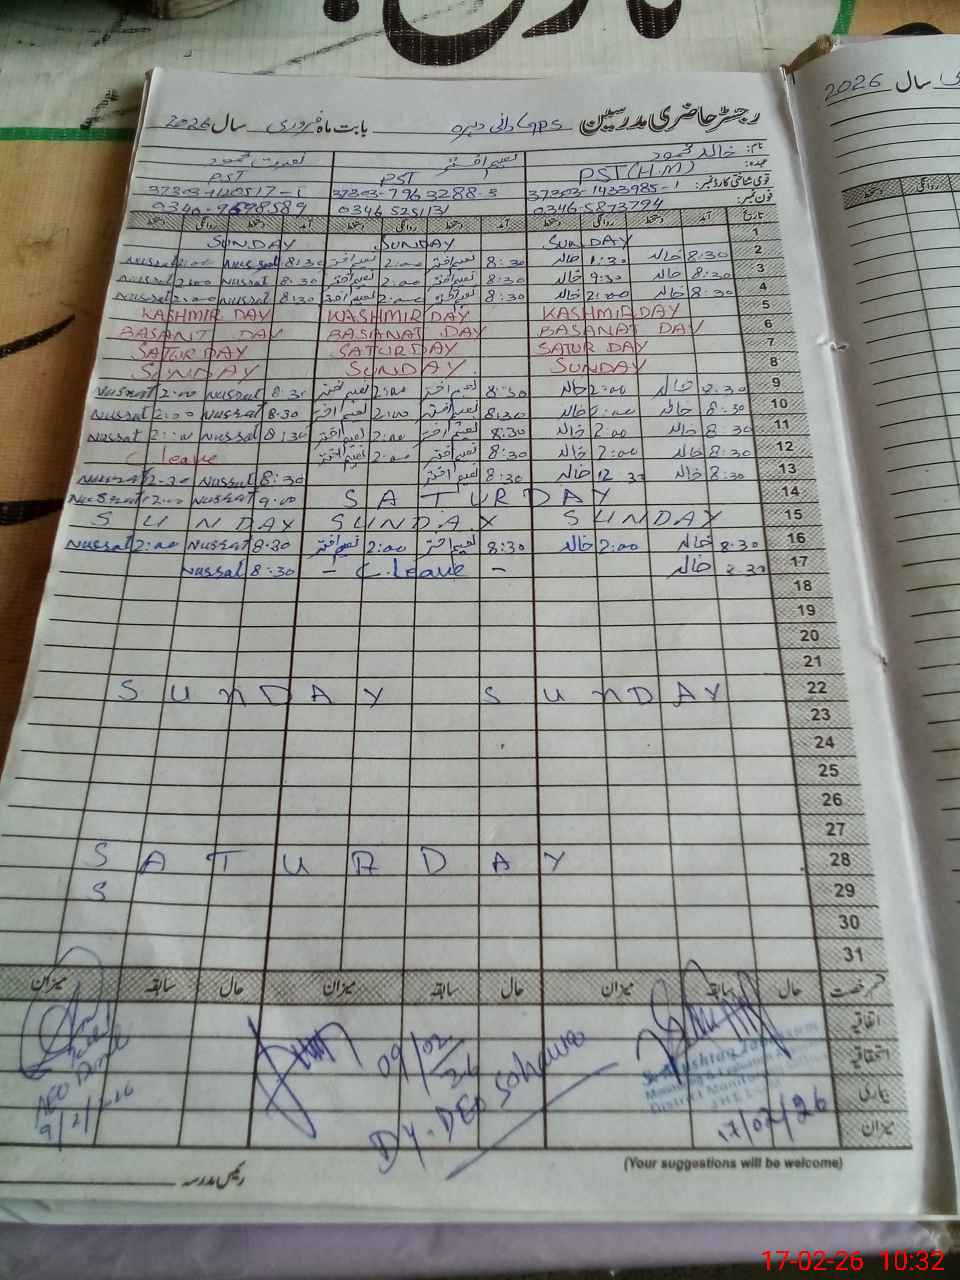 سال 2026
رجسٹر حاضری مدرسین GPS دانی دیرہ بابت ماہ فروری سال 2026
نام: خالد محمود نعیم اختر
عہدہ: PST(H.M) PST PST
قومی شناختی کارڈ نمبر: 37303-1433985-1 37303-7963288-3
فون نمبر: 0346-5873794 0346 5251131 0340-9698589
تاریخ آمد دستخط روانگی دستخط آمد دستخط روانگی دستخط آمد دستخط روانگی دستخط
1 SUNDAY SUNDAY SUNDAY
2 8:30 خالد 1:30 خالد 8:30 نعیم اختر 2:00 نعیم اختر 8:30 Nussrat 2:00 Nussrat
3 8:30 خالد 9:30 خالد 8:30 نعیم اختر 2:00 نعیم اختر 8:30 Nussrat 2:00 Nussrat
4 8:30 خالد 2:00 خالد 8:30 نعیم اختر 2:00 نعیم اختر 8:30 Nussrat 2:00 Nussrat
5 KASHMIR DAY KASHMIR DAY KASHMIR DAY
6 BASANT DAY BASANAT DAY BASANAT DAY
7 SATURDAY SATURDAY SATURDAY
8 SUNDAY SUNDAY SUNDAY
9 8:30 خالد 2:00 خالد 8:30 نعیم اختر 2:00 نعیم اختر 8:30 Nussrat 2:00 Nussrat
10 8:30 خالد 2:00 خالد 8:30 نعیم اختر 2:00 نعیم اختر 8:30 Nussrat 2:00 Nussrat
11 8:30 خالد 2:00 خالد 8:30 نعیم اختر 2:00 نعیم اختر 8:30 Nussrat 2:00 Nussrat
12 8:30 خالد 2:00 خالد 8:30 نعیم اختر 2:00 نعیم اختر C leave
13 8:30 خالد 12 30 خالد 8:30 نعیم اختر 8:30 Nussrat Nussrat
14 SATURDAY 9:00 Nussrat 12:00 Nussrat
15 SUNDAY SUNDAY SUNDAY
16 8:30 خالد 2:00 خالد 8:30 نعیم اختر 2:00 نعیم اختر 8:30 Nussrat 2:00 Nussrat
17 8:30 خالد - C.leave - 8:30 Nussrat
18
19
20
21
22 SUNDAY SUNDAY
23
24
25
26
27
28 SATURDAY
29 S
30
31
قسم رخصت حال سابقہ میزان حال سابقہ میزان حال سابقہ میزان
اتفاقیہ
استحقاقیہ
بیماری
میزان
09/02/26
Dy. DEO Sohawa
AEO
9/2/2026
District Monitoring
17/02/26
(Your suggestions will be welcome)
رئیس مدرسہ
17-02-26 10:32